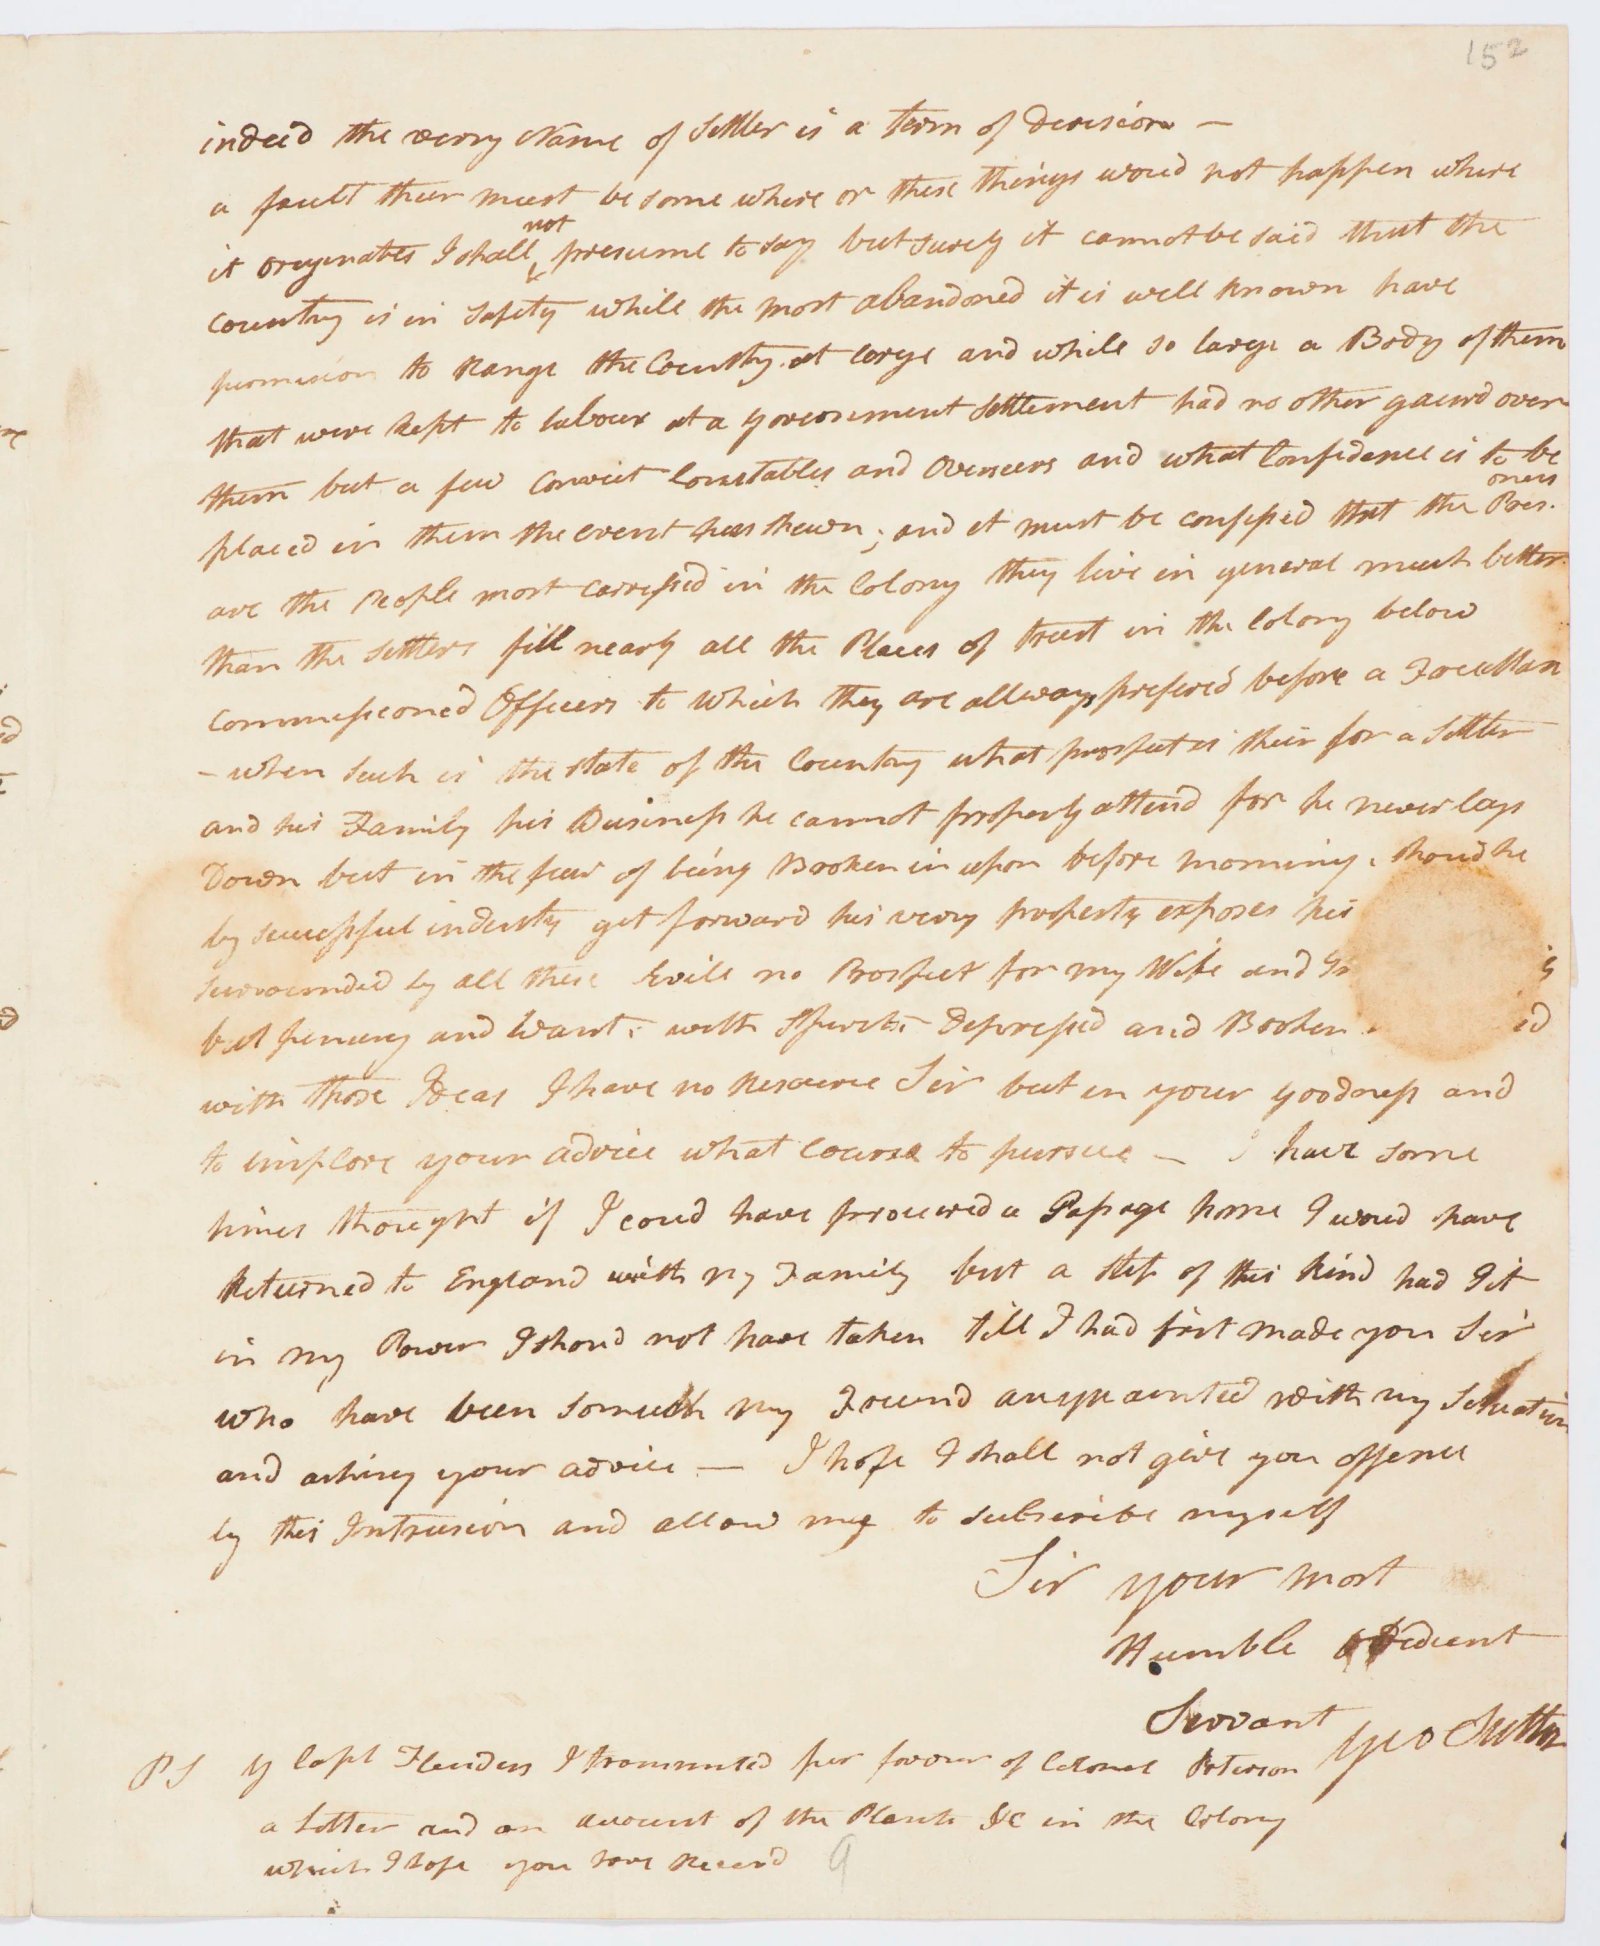 152
indeed the verry Name of Settler is a term of derision —
a fault their must be some where or these things woud not happen where
it originates I shall not presume to say but surely it cannot be said that the
Country is in safity while the most abandoned it is well known have
permission to Range the Country at large and while so large a Body of them
that were kept to labour at a government settlement had no other gaurd over
them but a few Convict Constables and Overseers and what Confidence is to be
placed in them the event has shewn; and it must be confessed that the Pris.oners
are the People most carressed in the Colony they live in general much better
than the settlers fill nearly all the Places of trust in the Colony below
Commissioned Officers to which they are allways prefered before a Free Man
– when such is the state of the Country what prospect is their for a Settler
and his Family his Buisiness he cannot properly attend for he never lays
Down but in the fear of being Broken in upon before morning, shoud he
by successful industry get forward his verry property exposes his
surrounded by all these Evils no Prospect for my Wife and
but penury and Want: with Spirits Depressed and Broken
with those Ideas I have no Resource Sir but in your goodness and
to implore your advice what course to pursue — I have some
times thought if I coud have procured a Passage home I woud have
Returned to England with my Family but a step of this kind had I it
in my Power I shoud not have taken till I had first made you Sir
who have been somuch my Freind acquainted with my Situation
and asking your advice — I hope I shall not give you offence
by this Intrusion and allow me to subscribe myself
Sir your most
Humble obedient
Servant Geo Suttor
PS by Capt Flinders I transmited per favour of Colonel Paterson
a Letter and an account of the Plants &c in the Colony
which I hope you have Receivd 9